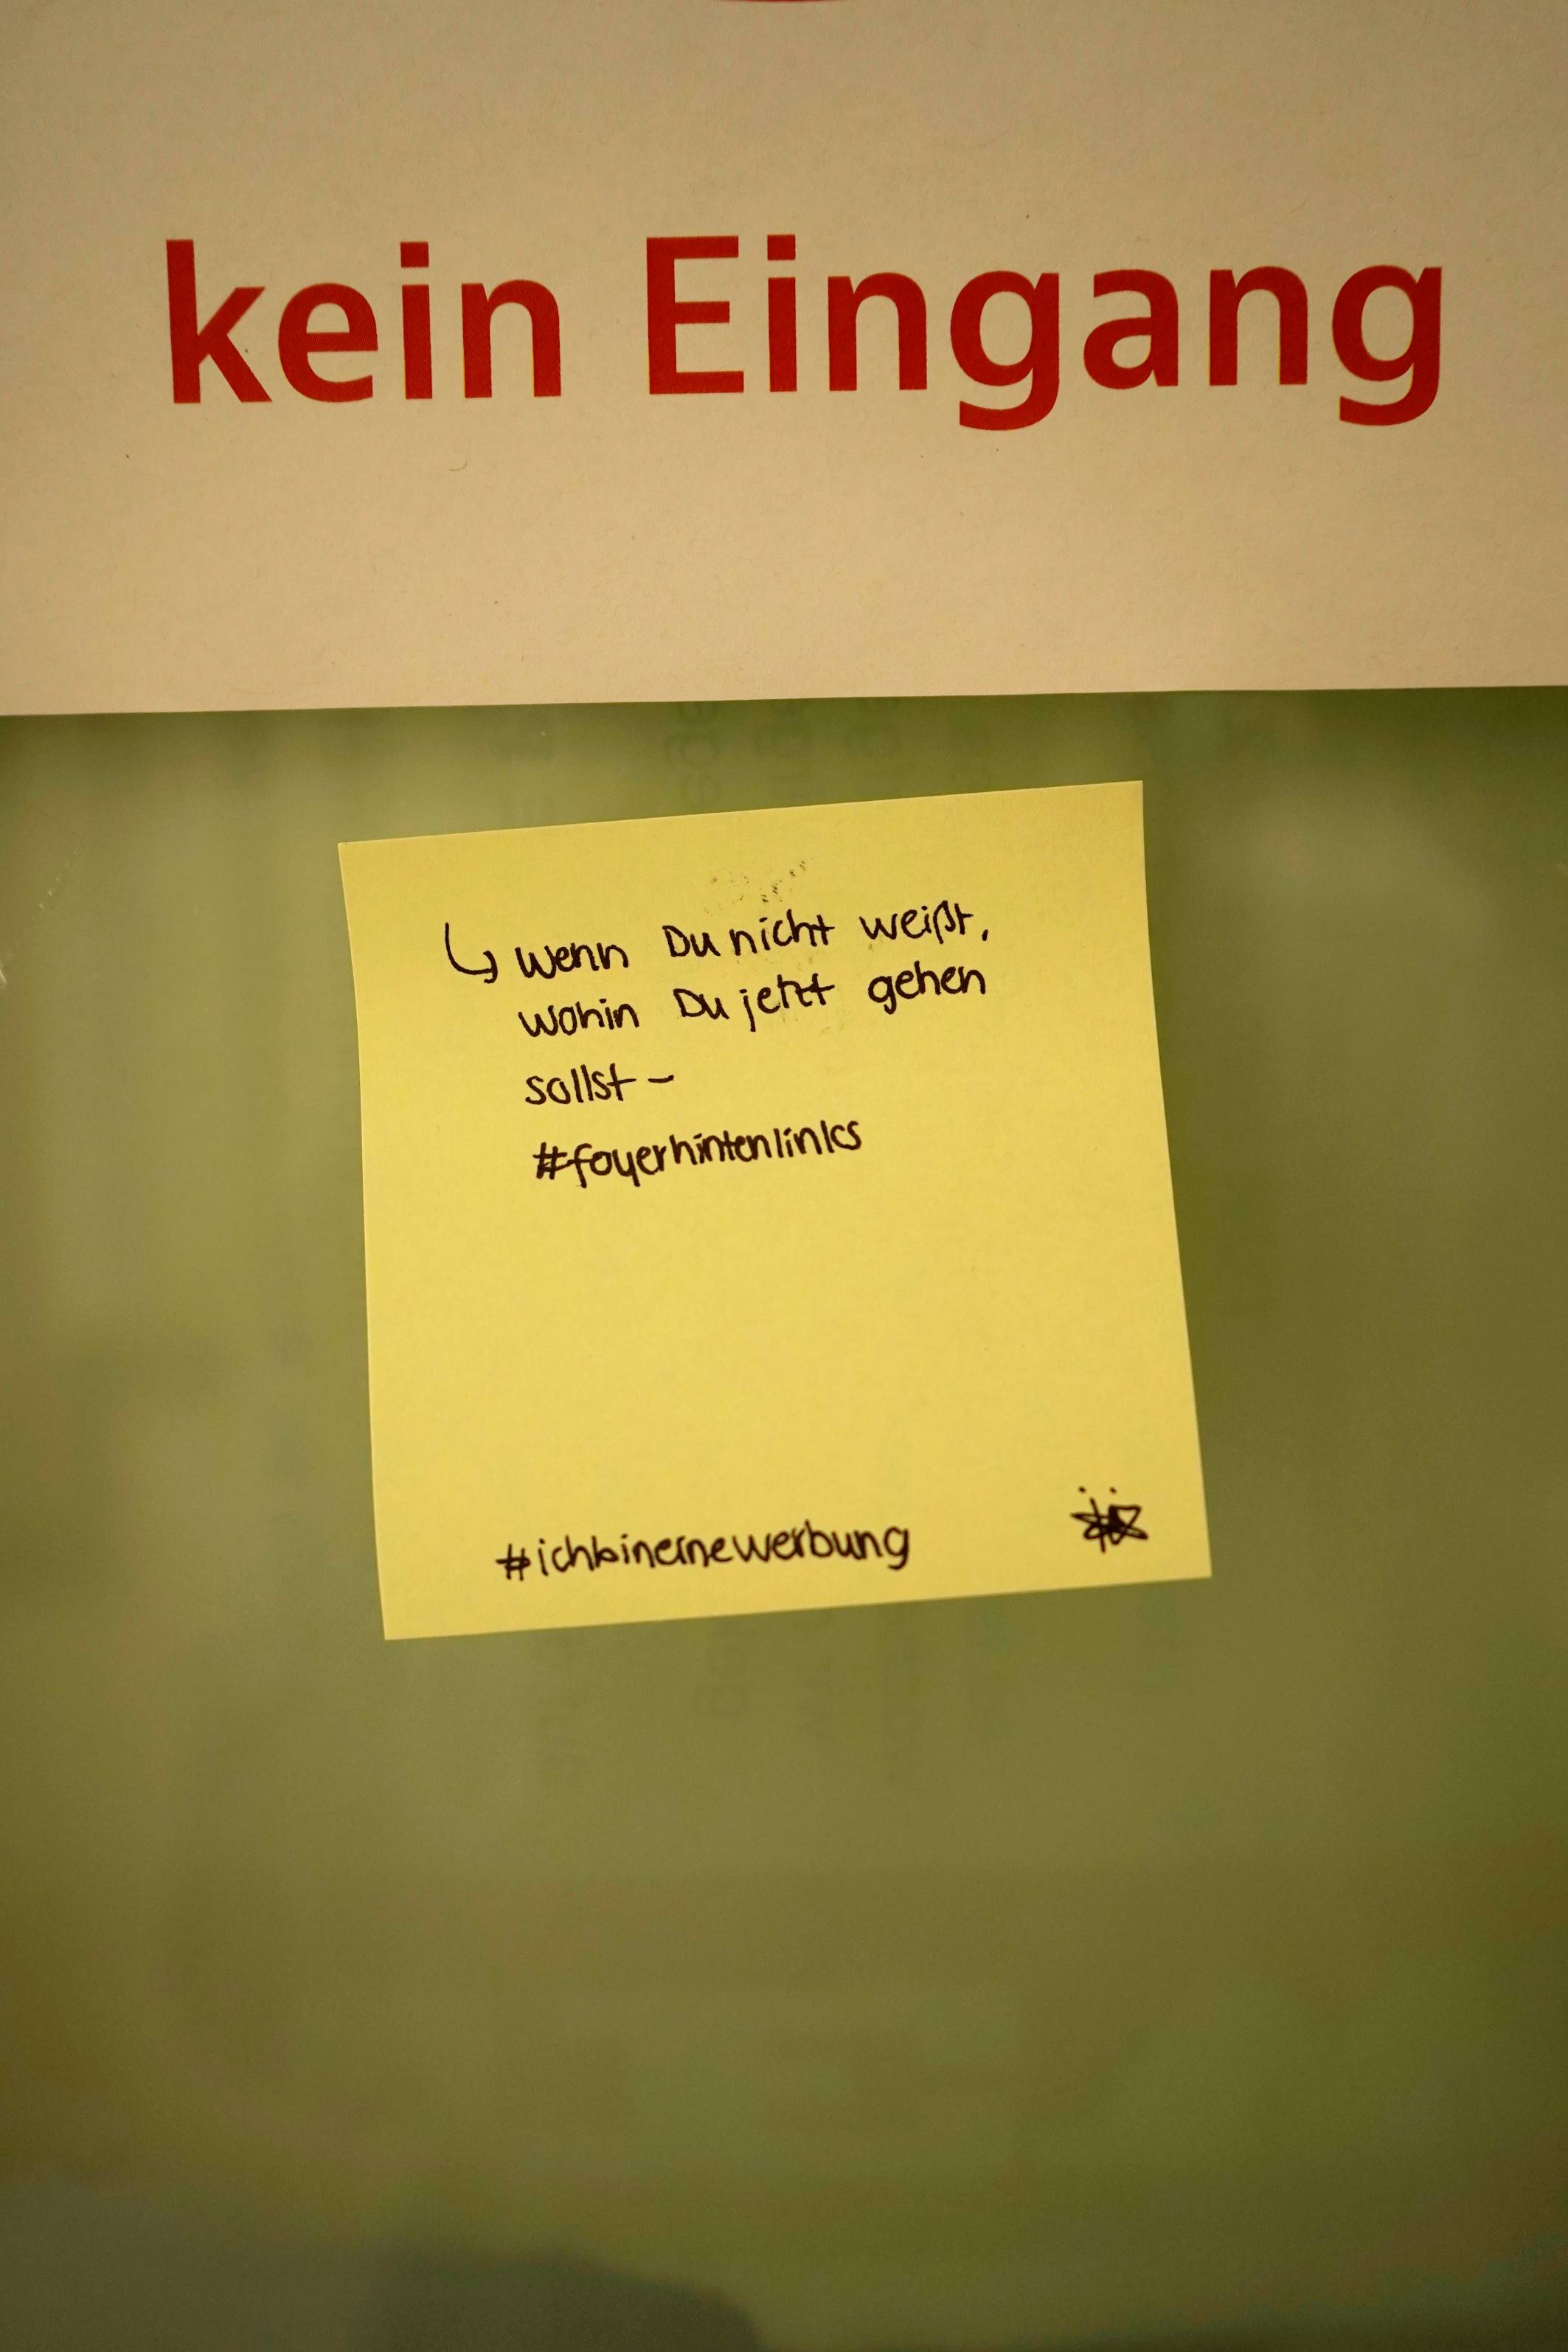 kein Eingang
↳ Wenn Du nicht weißt,
wohin Du jetzt gehen
sollst –
#foyerhintenlinks
#ichbineinewerbung